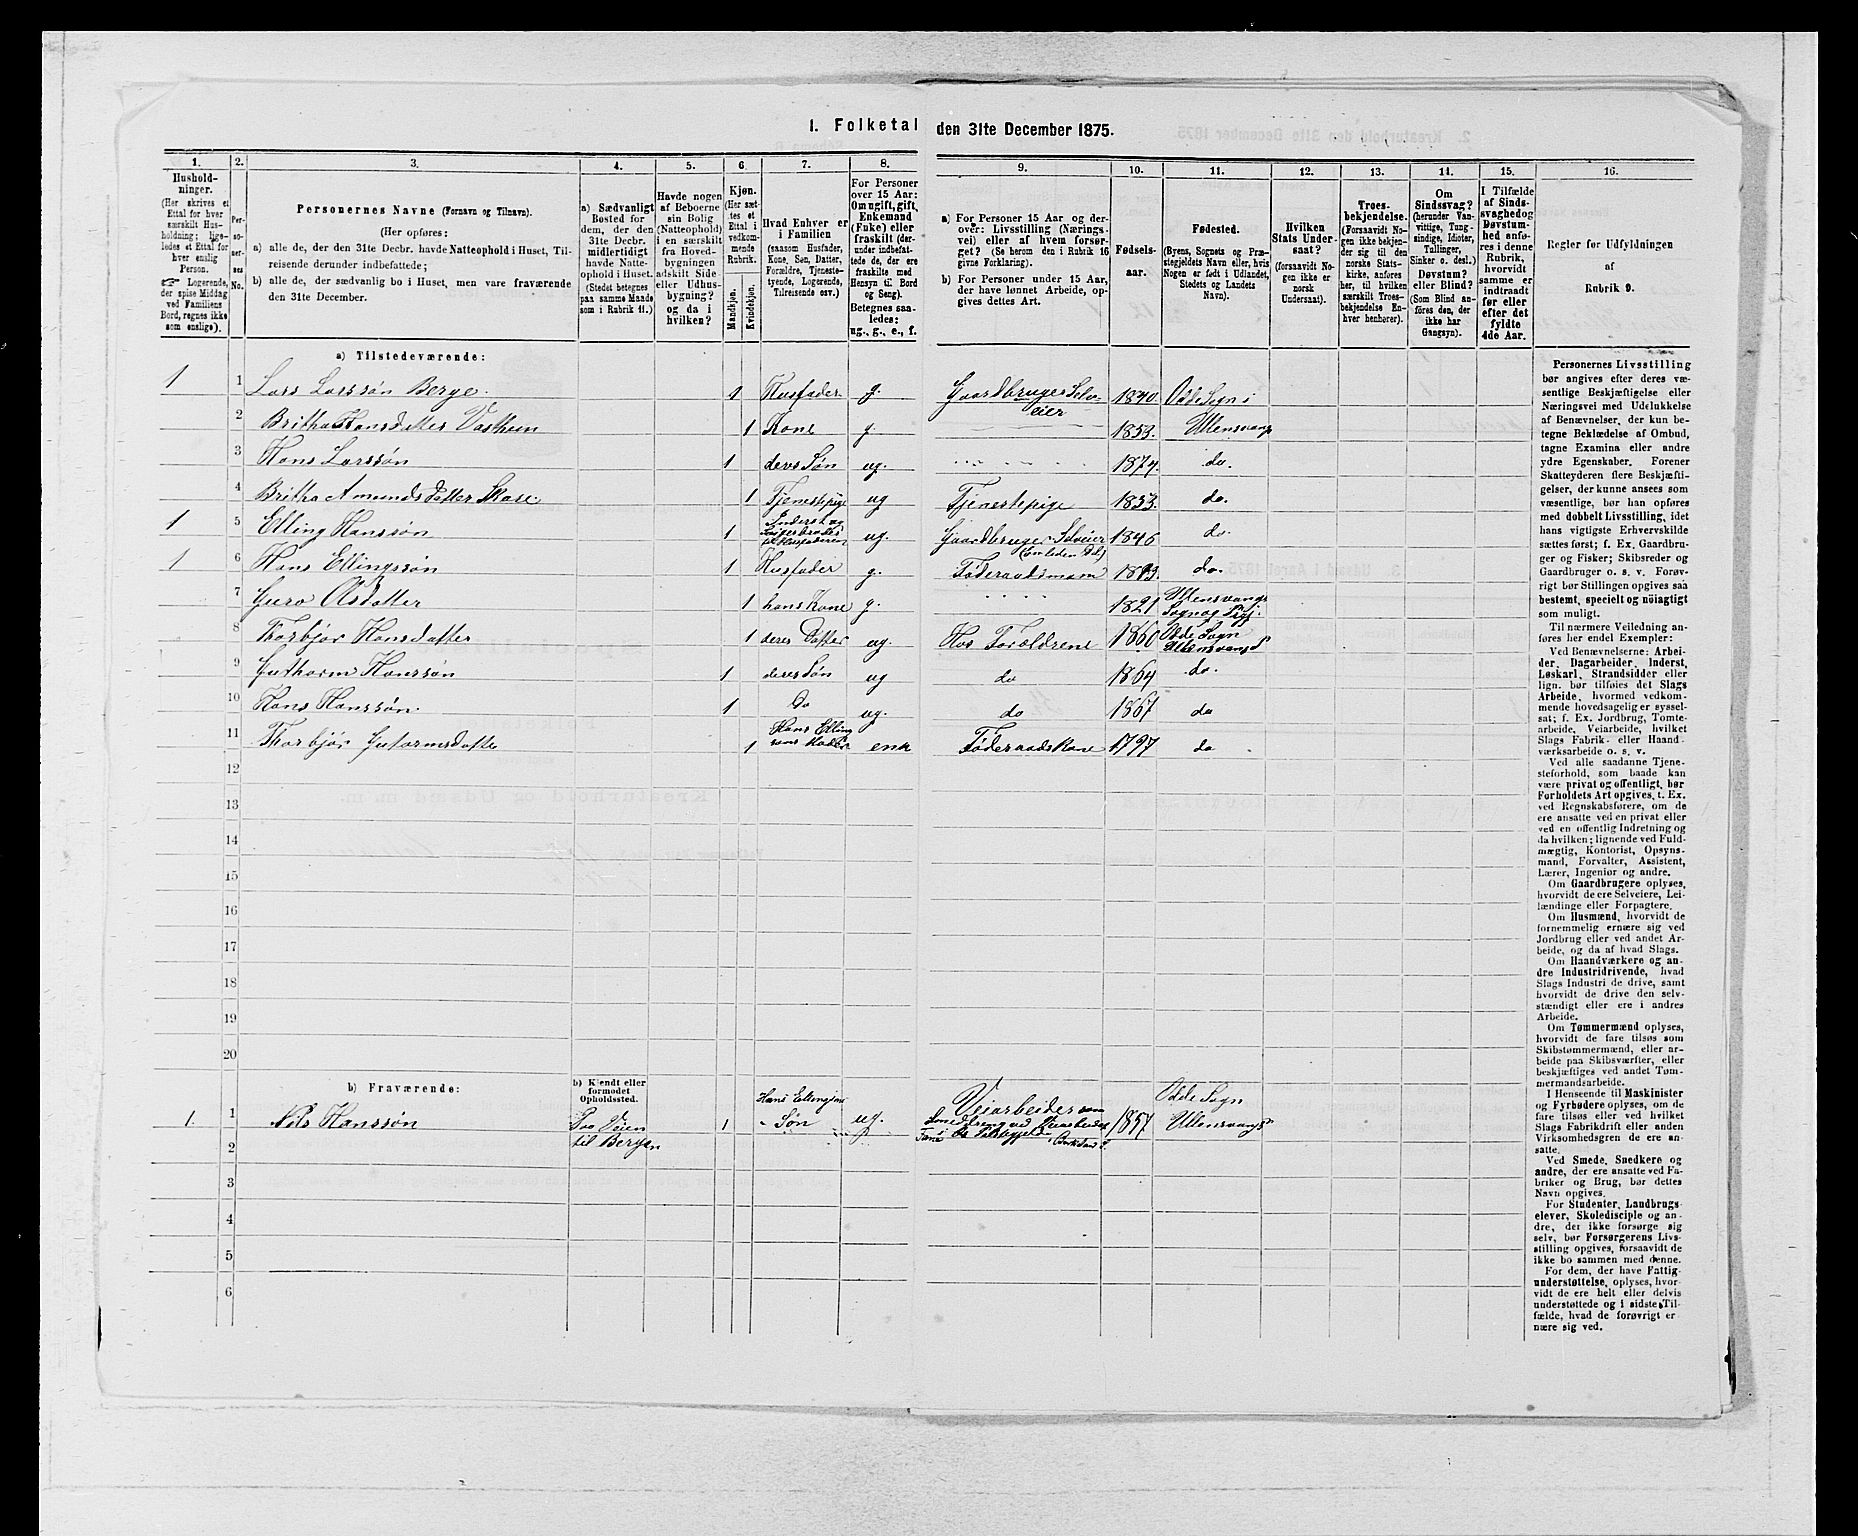 1. Folketal den 31te December 1875.
1. 2. 3. 4. 5. 6. 7. 8. 9. 10. 11. 12. 13. 14. 15. 16.
Hushold-
ninger.
(Her skrives et
Ettal for hver
særskilt Hus-
holdning; lige-
ledes et Ettal for
hver enslig
Person.
☞ Logerende,
der spise Middag
ved Familiens
Bord, regnes ikke
som enslige).
Per-
so-
ner-
nes
No.
Personernes Navne (Fornavn og Tilnavn).
(Her opføres:
a) alle de, der den 31te Decbr. havde Natteophold i Huset, Til-
reisende derunder indbefattede;
b) alle de, der sædvanlig bo i Huset, men vare fraværende
den 31te December.
a) Sædvanligt
Bosted for
dem, der den
31te Decbr.
midlertidigt
havde Natte-
ophold i Huset.
(Stedet betegnes
paa samme Maade
som i Rubrik 11.)
Havde nogen
af Beboerne
sin Bolig
(Natteophold)
i en særskilt
fra Hoved-
bygningen
adskilt Side
eller Udhus-
bygning?
og da i
hvilken?
Kjøn.
(Her sæt-
tes et
Ettal i
vedkom-
mende
Rubrik.
Mandkjøn.
Kvindekjøn.
Hvad Enhver er
i Familien
(saasom Husfader,
Kone, Søn, Datter,
Forældre, Tjeneste-
tyende, Logerende,
Tilreisende osv.)
For Personer
over 15 Aar:
Om ugift, gift,
Enkemand
(Enke) eller
fraskilt (der-
under indbefat-
tede de, der ere
fraskilte med
Hensyn til Bord
og Seng).
Betegnes saa-
ledes:
ug., g., e., f.
a) For Personer 15 Aar og der-
over: Livsstilling (Nærings-
vei) eller af hvem forsør-
get? (Se herom den i Rubrik 16
givne Forklaring).
b) For Personer under 15 Aar,
der have lønnet Arbeide, op-
gives dettes Art.
Fødsels-
aar.
Fødested.
(Byens, Sognets og Præ-
stegjeldets Navn eller, hvis
Nogen er født i Udlandet,
Stedets og Landets
Navn).
Hvilken
Stats Under-
saat?
(forsaavidt No-
gen ikke er
norsk
Undersaat).
Troes-
bekjendelse.
(Forsaavidt No-
gen ikke bekjen-
der sig til den
norske Stats-
kirke, anføres
her, til hvilken
særskilt Troes-
bekjendelse En-
hver henhører).
Om
Sindssvag?
(herunder Van-
vittige, Tung-
sindige, Idioter,
Tullinger,
Sinker o. desl.)
Døvstum?
eller Blind?
(Som Blind an-
føres den, der
ikke har
Gangsyn).
I Tilfælde
af Sinds-
svaghed og
Døvstum-
hed anfø-
res i denne
Rubrik,
hvorvidt
samme er
indtraadt
før eller
efter det
fyldte
4de Aar.
Regler for Udfyldningen
af
Rubrik 9.
a) Tilstedeværende:
1 1 Lars Larssøn Berge. 1 Husfader g. Gaardbruger Selv-
eier 1840. Odde Sogn i
2 Britha Hansdatter 1 Kone g. 1853. Ullensvangs
3 Hans Larssøn 1 deres Søn ug. 1874. do.
4 Britha Amundsdatter 1 Tjenestepige ug Tjenestepige 1853. do.
1 5 Elling Hanssøn 1 ug. Gaardbruger Selveier 1846 do.
1 6 Hans Ellingssøn 1 Husfader g. Føderaadsmand do.
7 Guro Olsdatter 1 hans Kone g. 1821 Ullensvangs
Sogn og Pgj.
8 Thorbjør Hansdatter 1 deres Datter ug. Hos Forældrene 1860 Odde Sogn
Ullensvangs
9 Guthorm Hanssøn 1 deres Søn ug do 1864 do.
10 Hans Hanssøn. 1 Do ug. do 1867 do
11 Thorbjør Guthormsdatter 1 Hans Elling
sens Moder enk Føderaadskone 1797 do
12
13
14
15
16
17
18
19
20
b) Fraværende:
b) Kjendt eller
formodet
Opholdssted.
1. 1 Nils Hanssøn Paa Veien
til Bergen 1 Hans Ellingsens
Søn ug. Veiarbeider 1857 Odde Sogn
Ullensvangs
2
3
4
5
6
Personernes Livsstilling
bør angives efter deres væ-
sentlige Beskjæftigelse eller
Næringsvei med Udelukkelse
af Benævnelser, der kun be-
tegne Beklædelse af Ombud,
tagne Examina eller andre
ydre Egenskaber. Forener
Skatteyderen flere Beskjæfti-
gelser, der kunne ansees som
væsentlige, bør han opføres
med dobbelt Livsstilling, idet
hans vigtigste Erhvervskilde
sættes først; f. Ex. Gaardbru-
ger og Fisker; Skibsreder og
Gaardbruger o. s. v. Forøv-
rigt bør Stillingen opgives saa
bestemt, specielt og nøiagtigt
som muligt.
Til nærmere Veiledning an-
føres her endel Exempler:
Ved Benævnelserne: Arbei-
der, Dagarbeider, Inderst,
Løskarl, Strandsidder eller
lign. bør tilføies det Slags
Arbeide, hvormed vedkom-
mende hovedsagelig er syssel-
sat; f. Ex. Jordbrug, Tomte-
arbeide, Veiarbeide, hvilket
Slags Fabrik- eller Haand-
værksarbeide o. s. v.
Ved alle saadanne Tjene-
steforhold, som baade kan
være privat og offentligt, bør
Forholdets Art opgives, t. Ex.
ved Regnskabsførere, om de
ere ansatte ved en privat eller
ved en offentlig Indretning og
da hvilken; lignende ved Fuld-
mægtig, Kontorist, Opsyns-
mand, Forvalter, Assistent,
Lærer, Ingeniør og andre.
Om Gaardbrugere oplyses,
hvorvidt de ere Selveiere, Lei-
lændinge eller Forpagtere.
Om Husmænd, hvorvidt de
fornemmelig ernære sig ved
Jordbrug eller ved andet Ar-
beide, og da af hvad Slags.
Om Haandværkere og an-
dre Industridrivende, hvad
Slags Industri de drive, samt
hvorvidt de drive den selv-
stændigt eller ere i andres
Arbeide.
Om Tømmermænd oplyses,
hvorvidt de fare tilsøs som
Skibstømmermænd, eller ar-
beide paa Skibsværfter, eller
beskjæftiges ved andet Tøm-
mermandsarbeide.
I Henseende til Maskinister
og Fyrbødere oplyses, om de
fare tilsøs eller ved hvilket
Slags Fabrikdrift eller anden
Virksomhedsgren de ere an-
satte.
Ved Smede, Snedkere og
andre, der ere ansatte ved Fa-
briker og Brug, bør dettes
Navn opgives.
For Studenter, Landbrugs-
elever, Skoledisciple og an-
dre, der ikke forsørge sig
selv, bør Forsørgerens Livs-
stilling opgives, forsaavidt de
ikke bo sammen med denne.
For dem, der have Fattig-
understøttelse, oplyses, hvor-
vidt de ere helt eller delvis
understøttede og i sidste Til-
fælde, hvad de forøvrigt er-
nære sig ved.